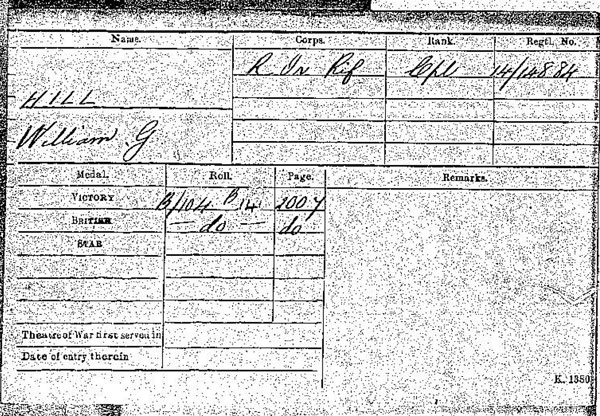 Name. Corps. Rank. Regtl. No.
R Ir Rif Cpl 14/14884
HILL
William G
Medal. Roll. Page. Remarks.
VICTORY B/104 B 14 2007
BRITISH — do — do
STAR
Theatre of War first served in
Date of entry therein
K. 1380